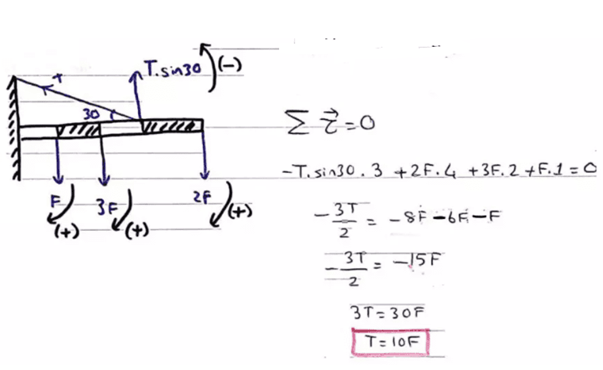 T
T.sin30
(-)
30
F
(+)
3F
(+)
2F
(+)
Σ τ⃗ = 0
-T.sin30 . 3 + 2F.4 + 3F.2 + F.1 = 0
-3T/2 = -8F - 6F - F
-3T/2 = -15F
3T = 30F
T = 10F